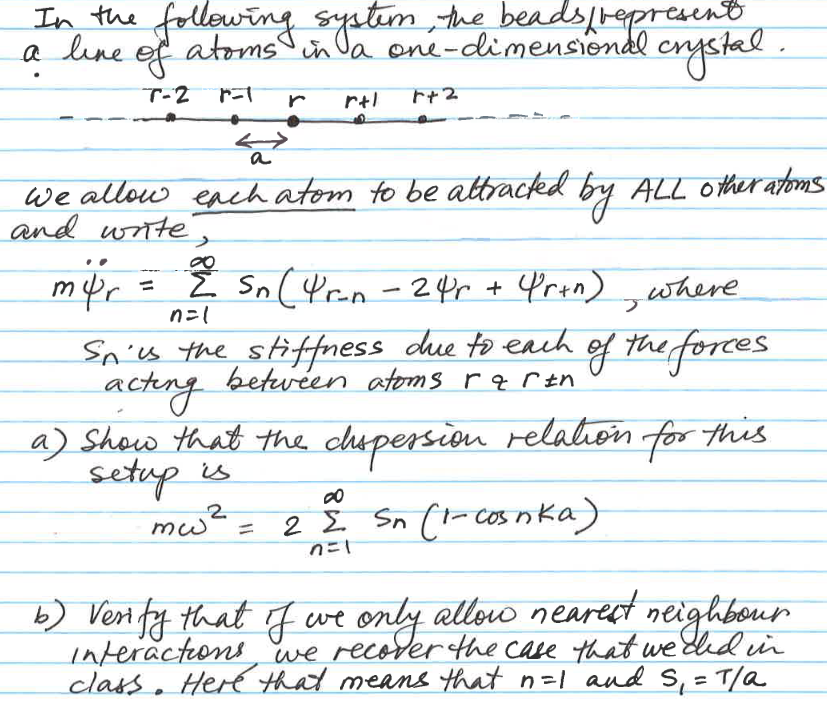 In the following system, the beads represent
a line of atoms in a one-dimensional crystal.
r-2 r-1 r r+1 r+2
a
We allow each atom to be attracted by ALL other atoms
and write,
mψ̈r = ∞Σn=1 Sn(ψr-n - 2ψr + ψr+n), where
Sn is the stiffness due to each of the forces
acting between atoms r & r±n
a) Show that the dispersion relation for this
setup is
mω² = 2 ∞Σn=1 Sn (1-cos nKa)
b) Verify that if we only allow nearest neighbour
interactions we recover the case that we did in
class. Here that means that n=1 and S₁ = T/a